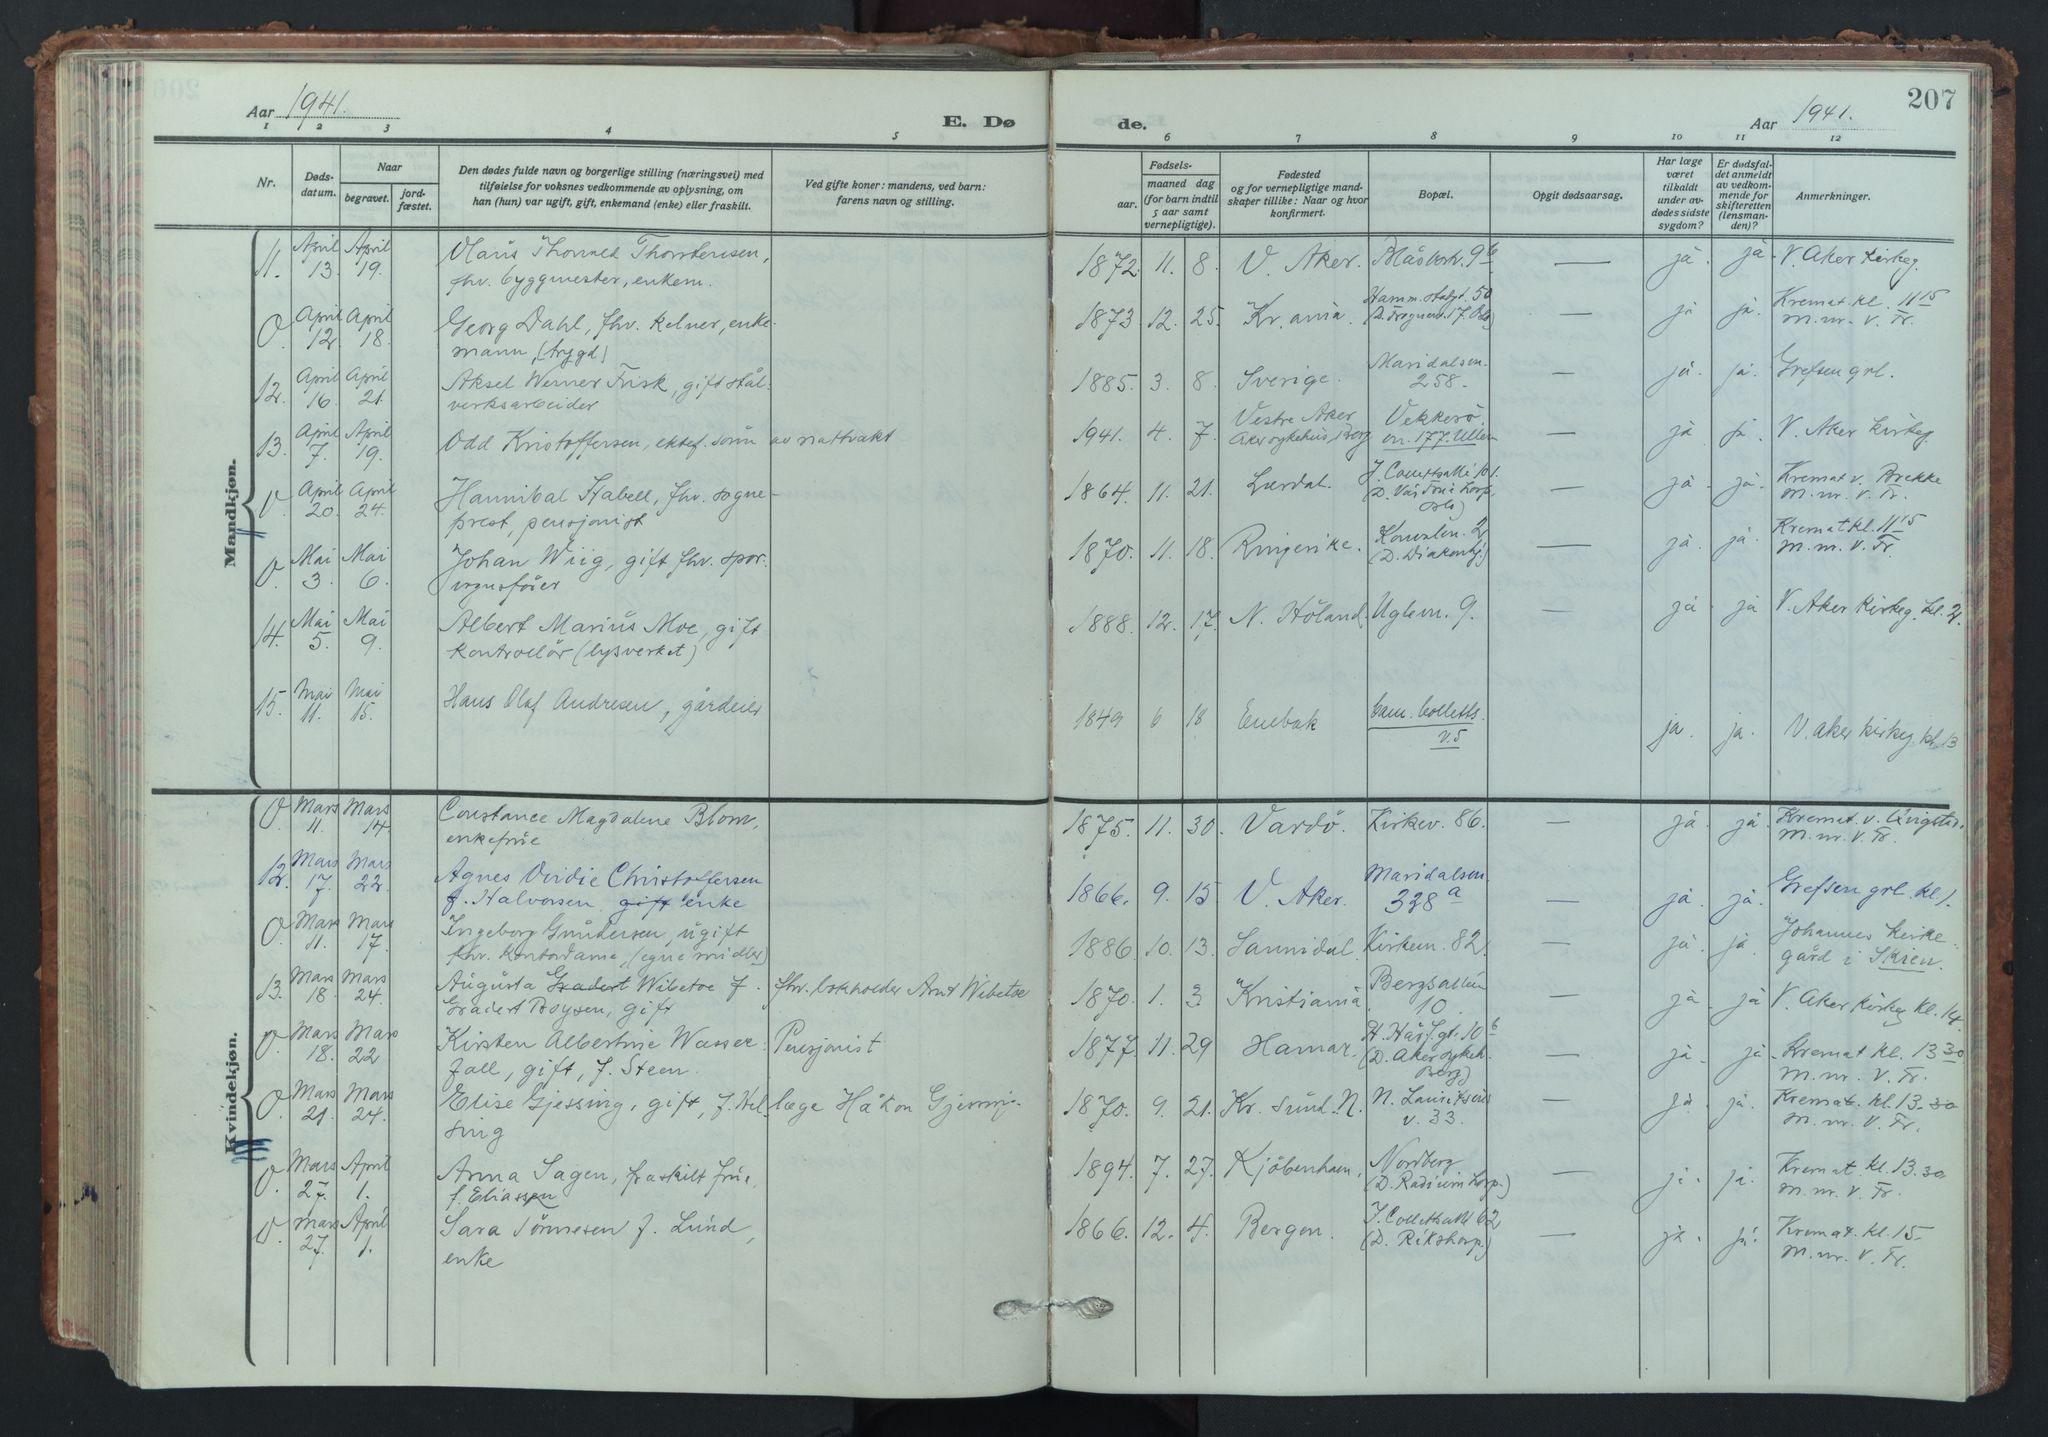 Aar 1941. E. Dø de. Aar 1941. 207
1 2 3 4 5 6 7 8 9 10 11 12
Nr. Døds-datum. Naar begravet. jord-fæstet. Den dødes fulde navn og borgerlige stilling (næringsvei) med tilføielse for voksnes vedkommende av oplysning, om han (hun) var ugift, gift, enkemand (enke) eller fraskilt. Ved gifte koner: mandens, ved barn: farens navn og stilling. Fødsels- aar. maaned dag (for barn indtil 5 aar samt vernepligtige). Fødested og for vernepligtige mand-skaper tillike: Naar og hvor konfirmert. Bopæl. Opgit dødsaarsag. Har læge været tilkaldt under av-dødes sidste sygdom? Er dødsfal-det anmeldt av vedkom-mende for skifteretten (lensman-den)? Anmerkninger.
Mandkjøn.
11. April 13. April 19. Thorstensen, fhv. byggmester, enkem. 1872. 11. 8. V. Aker. 9b — ja. ja. V. Aker kirkeg.
0 April 12 April 18. Georg Dahl, fhv. kelner, enke-mann, (trygd) 1873 12. 25. Kr.ania. — ja ja Kremat. kl. 11 15 M. nr. V. Fr.
12. April 16. April 21. Aksel Werner Frisk, gift stål-verksarbeider 1885. 3. 8. Sverige. Maridalsv. 258. — ja. ja. Grefsen grl.
13. April 7. April 19. Odd Kristoffersen, ektef. sønn av nattvakt 1941. 4. 7. Vestre Aker Aker sykehus, Berg — ja ja. V. Aker kirkeg.
0 April 20. April 24. Hannibal Stabell, fhv. sogne-prest, pensjonist 1864. 11. 21. Lærdal. J. Collettsallé 101. — ja. ja. Kremat v. Brekke M. nr. V. Fr.
0 Mai 3. Mai 6. Johan Wiig, gift fhv. spor-vognsfører 1870. 11. 18. Ringerike. (D. Diakonhj.) — ja. ja Kremat kl. 11 15 M. nr. V. Fr.
14. Mai 5. Mai 9. Albert Marius Moe, gift kontrollør (lysverket) 1888. 12. 17. N. Höland. Uglev. 9. — ja. ja V. Aker kirkeg. kl. 2.
15. Mai 11. Mai 15. Hans Olaf Andresen, gårdeier 1849 6 18 Enebak Cam. Colletts. v. 5 ja. ja. V. Aker kirkeg kl. 13
Kvindekjøn.
0 Mars 11. Mars 14. Constance Magdalene Blom, enkefrue 1875. 11. 30. Vardö. Kirkev. 86. — ja. ja. Kremat. v. Qvigstad. M. nr. V. Fr.
12. Mars 17. Mars 22. Agnes Christoffersen f. Halvorsen gift enke 1866. 9. 15 V. Aker. Maridalsv. 338 a — ja. ja. Grefsen grl. kl. 1.
0 Mars 11. Mars 17. Ingeborg Gundersen, ugift fhv. kontordame, (egne midler) 1886. 10. 13. Sannidal. Kirkev. 82. — ja. ja Johannes kirke-gård i Skien.
13. Mars 18. Mars 24. Augusta Gradert Wibetoe f. Gradert Boysen, gift fhv. bokholder Arnt Wibetoe 1870. 1. 3. Kristiania Bergsalléen 10. — ja. ja V. Aker kirkeg kl. 14.
0 Mars 18. Mars 22 Kirsten Albertine Wasser-fall, gift, f. Steen. Pensjonist 1877. 11. 29 Hamar. (D. Aker sykeh. Berg) — ja. ja. Kremat kl. 13 30 M. nr. V. Fr.
0 Mars 21. Mars 24. Elise Gjessing, gift, f. læge Håkon Gjessing. 1870. 9. 21. Kr. sund. N. N. v. 33. — ja. ja. Kremat. kl. 13.30 M. nr. V. Fr.
0 Mars 27. April 1. Anna Sagen, fraskilt frue, f. Eliassen 1894. 7. 27. Kjöbenhavn. Nordberg (D. Radium hosp.) — ja. ja. Kremat. kl. 13.30 M. nr. V. Fr.
0 Mars 27. April 1. Sara Tönnesen f. Lund, enke 1866. 12. 4. Bergen. J. Collettsallé 62 (D. Rikshosp.) — ja. ja. Kremat. kl. 15. M. nr. V. Fr.